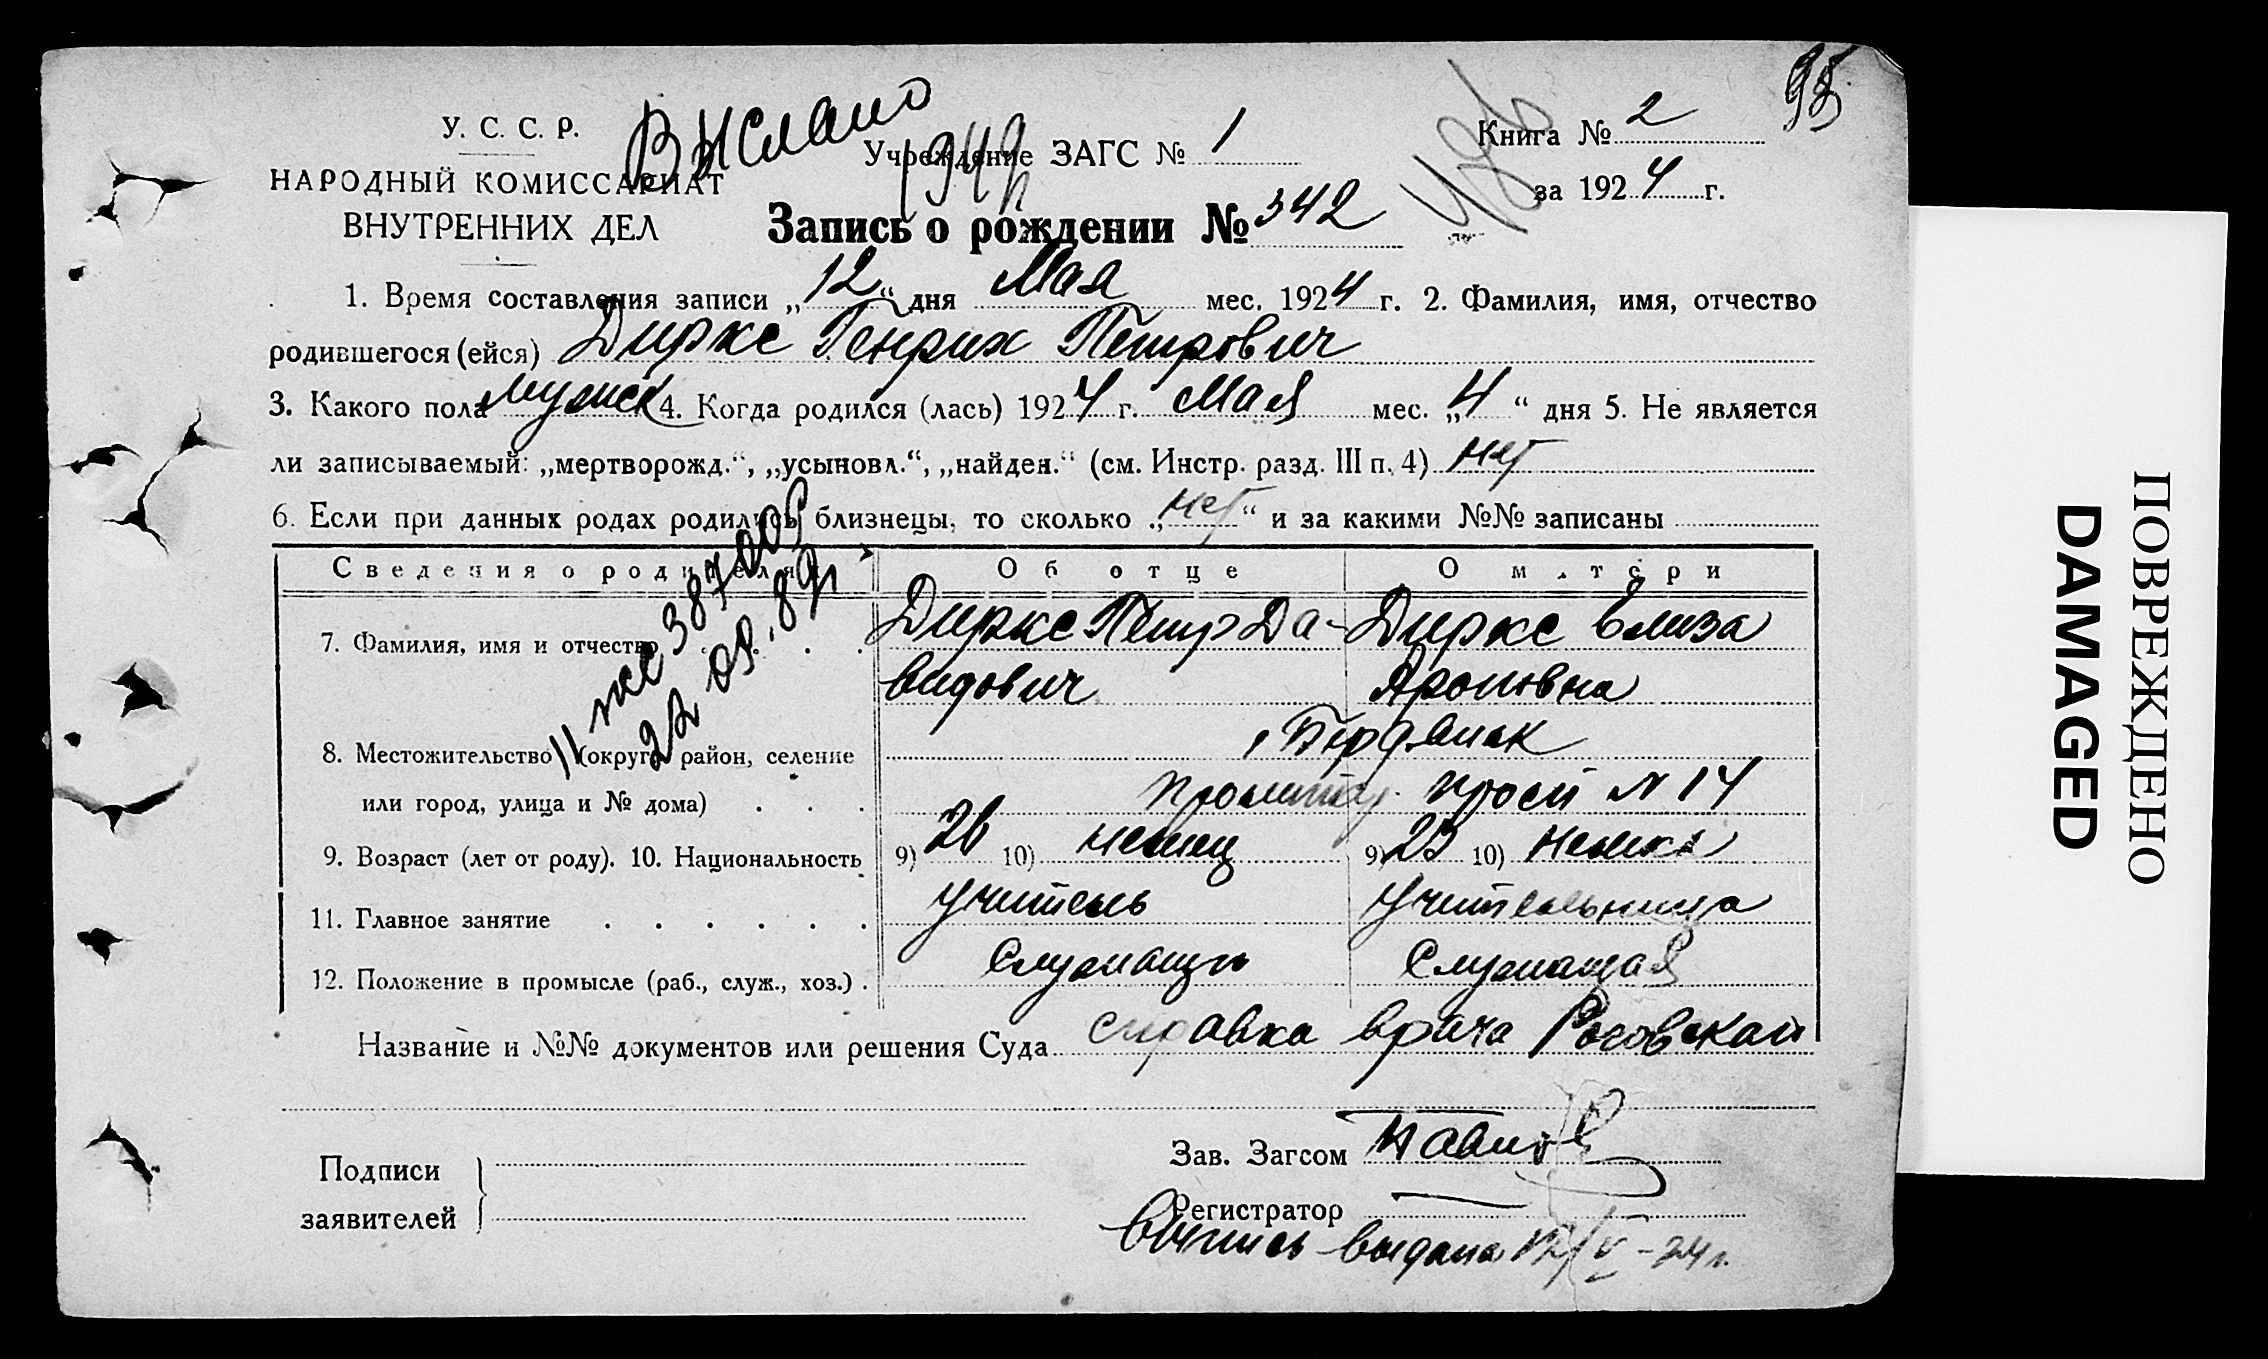 95
У. С. С. Р.
НАРОДНЫЙ КОМИССАРИАТ
ВНУТРЕННИХ ДЕЛ
Выслано
Учреждение ЗАГС № 1
Книга № 2
за 1924 г.
Запись о рождении № 342
1. Время составления записи „12“ дня Мая мес. 1924 г. 2. Фамилия, имя, отчество
родившегося (ейся) Диркс Генрих Петрович
3. Какого пола мужск 4. Когда родился (лась) 1924 г. Мая мес. „4“ дня 5. Не является
ли записываемый: „мертворожд.“, „усыновл.“, „найден.“ (см. Инстр. разд. III п. 4) нет
6. Если при данных родах родились близнецы, то сколько „нет“ и за какими №№ записаны
Сведения о родителях Об отце О матери
7. Фамилия, имя и отчество Диркс Петр Да- Диркс Елиза
видович Ароновна
8. Местожительство (округ, район, селение Бердянск
или город, улица и № дома) Пролетар. просп N 14
9. Возраст (лет от роду). 10. Национальность 9) 26 10) немец 9) 23 10) немка
11. Главное занятие учитель учительница
12. Положение в промысле (раб., служ., хоз.) служащий служащая
Название и №№ документов или решения Суда справка врача Роговской
Подписи
заявителей
Зав. Загсом
Регистратор
Выпись выдана 12/V-24 г.
ПОВРЕЖДЕНО
DAMAGED